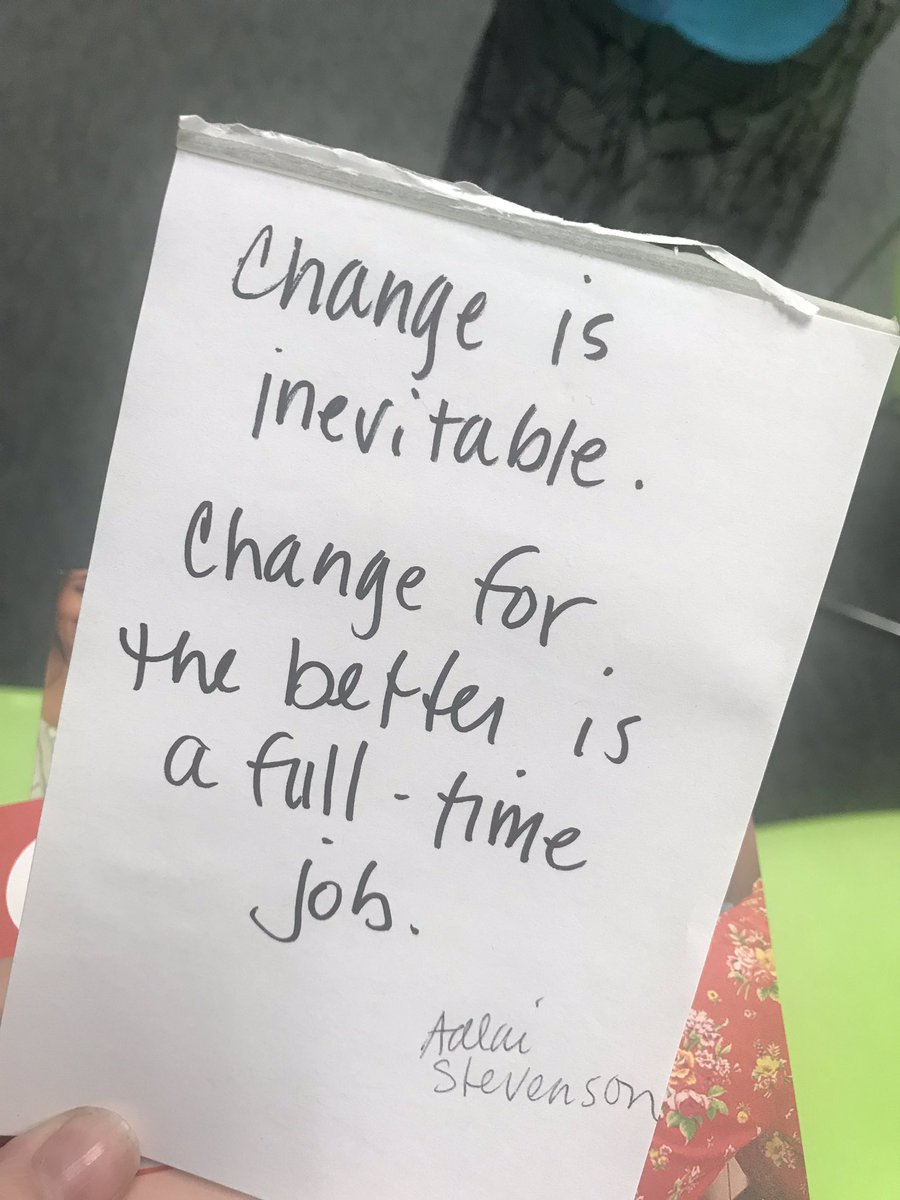 Change is
inevitable.
Change for
the better is
a full-time
job.
Adlai
Stevenson